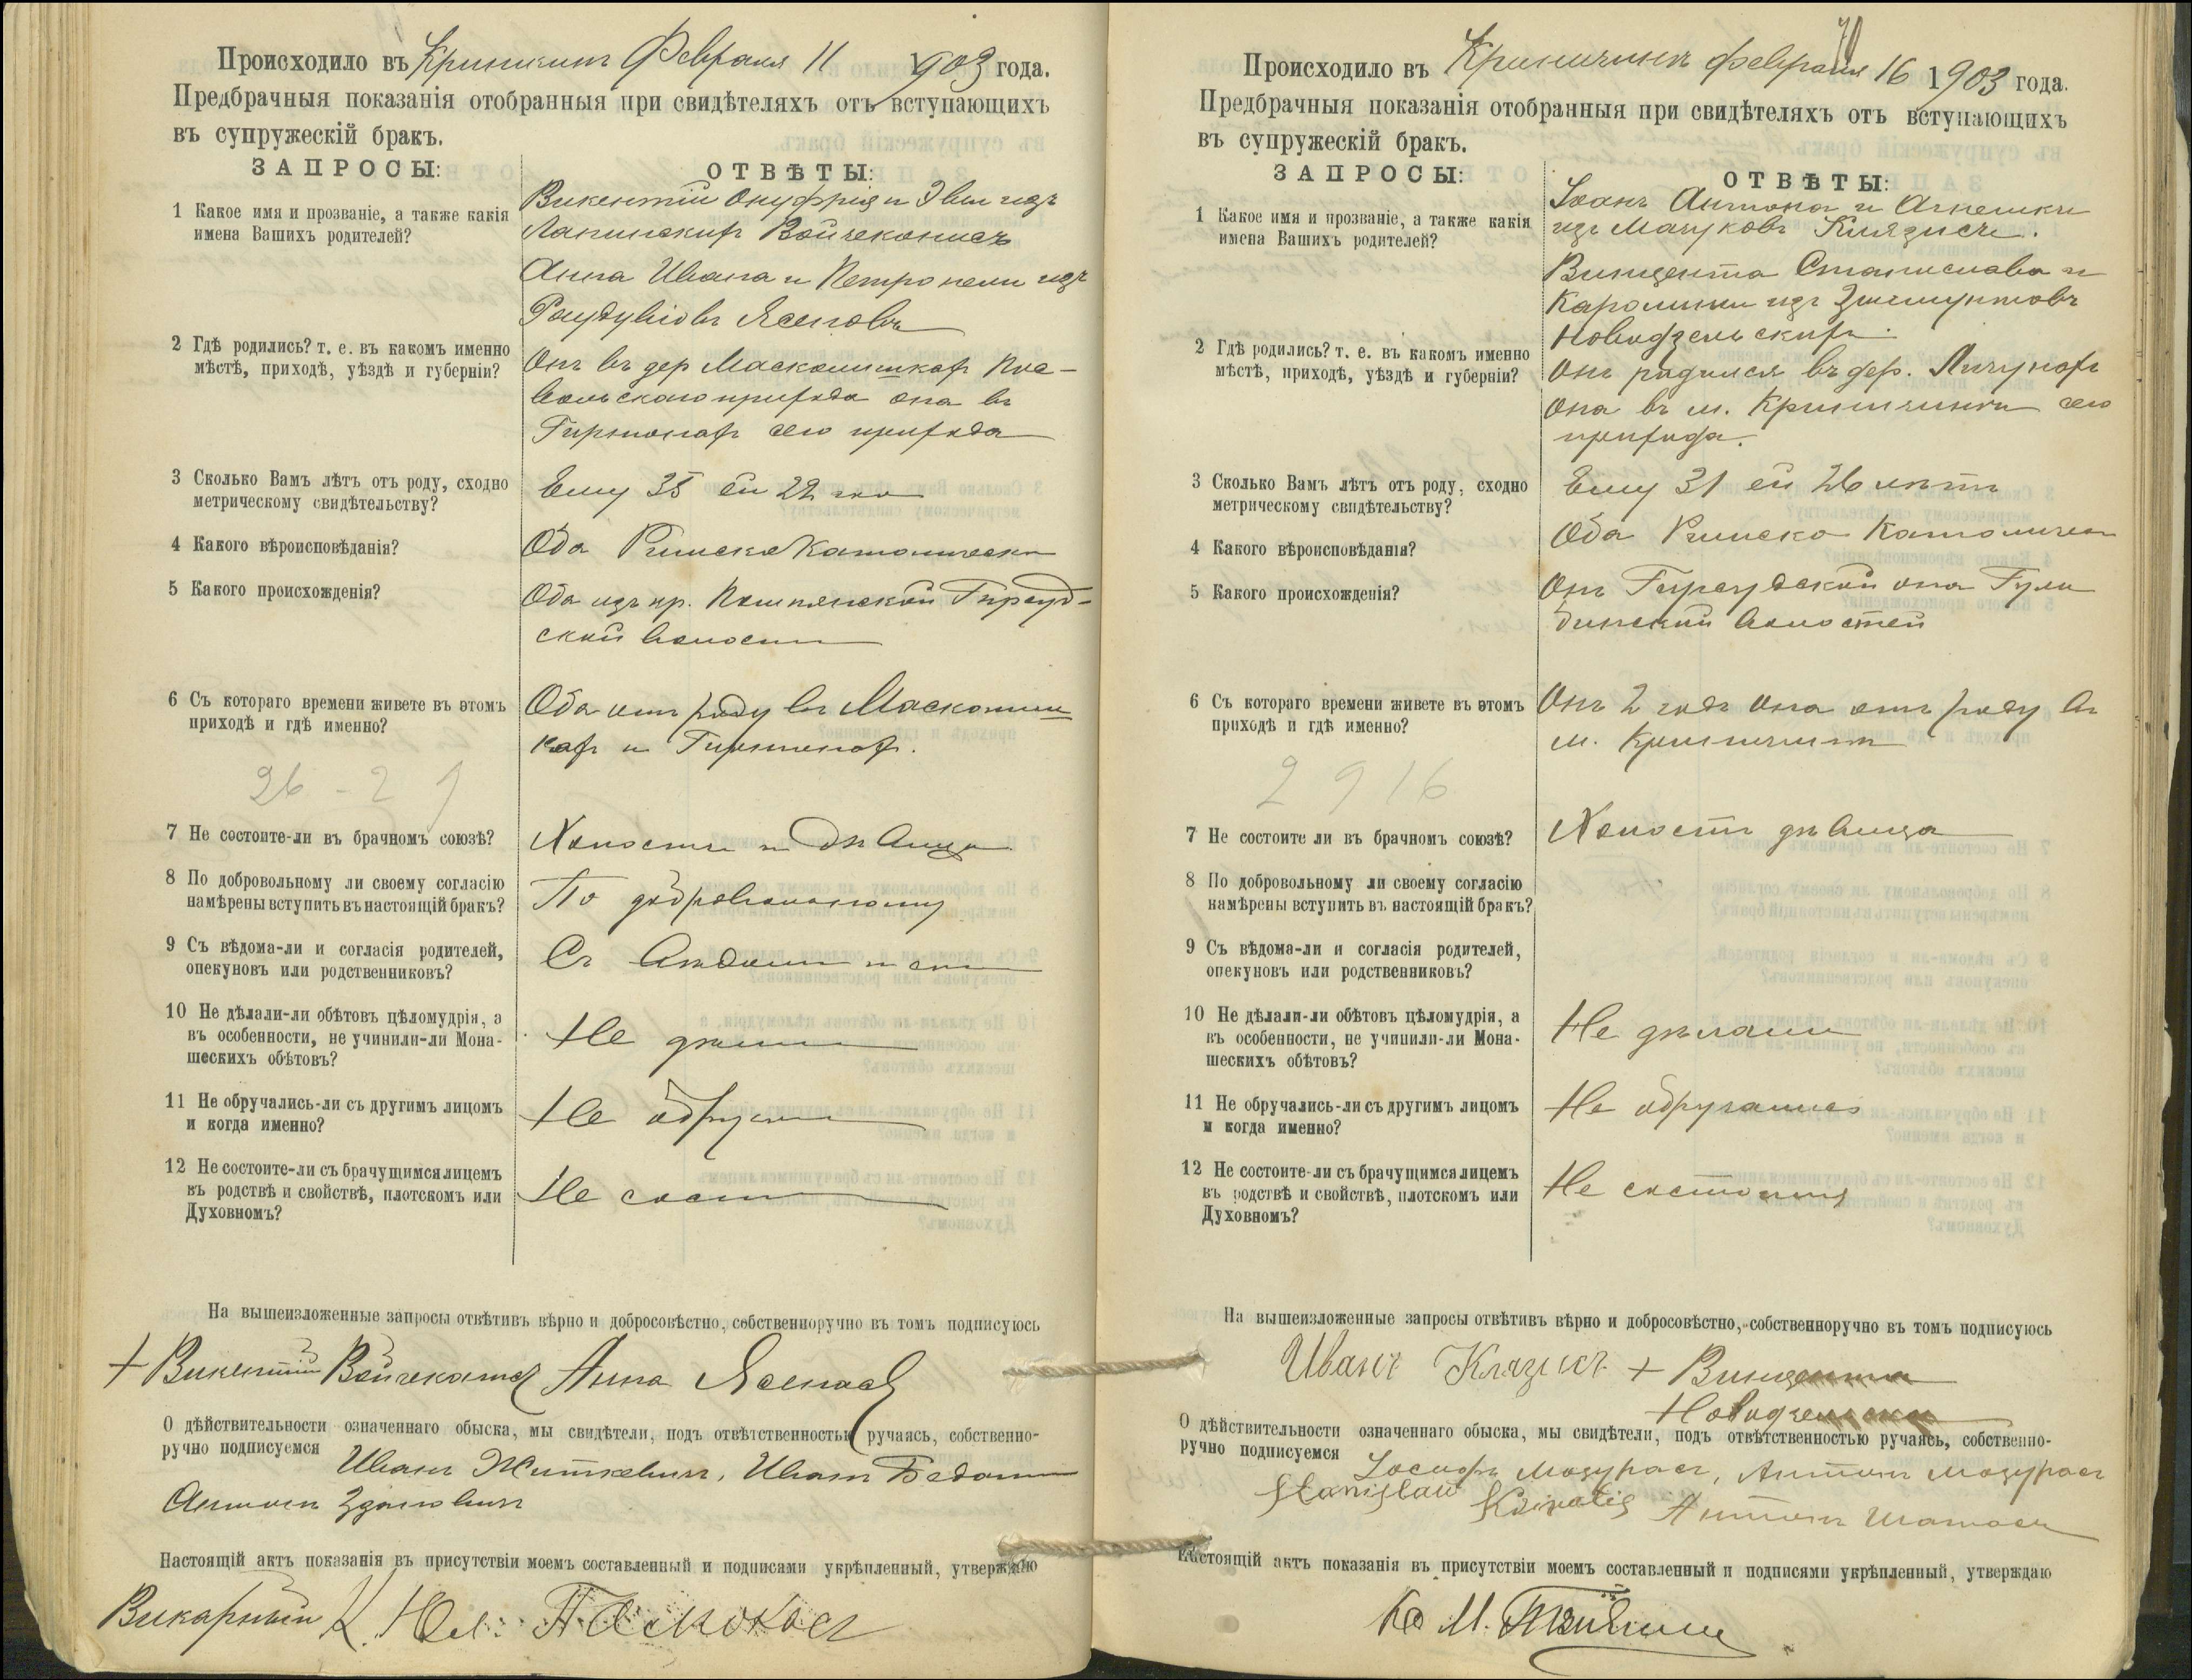 Происходило въ Криничинъ Февраля 11 1903 года.
Предбрачныя показанія отобранныя при свидѣтеляхъ отъ вступающихъ
въ супружескій бракъ.
ЗАПРОСЫ: ОТВѢТЫ:
1 Какое имя и прозваніе, а также какія
имена Вашихъ родителей?
Викентій Онуфрія и Эвы изъ
Лапинскихъ Войчеконисъ
Анна Ивана и Петронели изъ
Ясенова
2 Гдѣ родились? т. е. въ какомъ именно
мѣстѣ, приходѣ, уѣздѣ и губерніи?
Онъ въ дер Масконишкахъ Пое-
вольскаго прихода она въ
сего прихода
3 Сколько Вамъ лѣтъ отъ роду, сходно
метрическому свидѣтельству?
Ему 35 ей 22 года
4 Какого вѣроисповѣданія?
Оба Римско Католическ
5 Какого происхожденія?
Оба изъ кр. Гирсуд-
ской волости
6 Съ котораго времени живете въ этомъ
приходѣ и гдѣ именно?
Оба отъ роду въ Маскониш
кахъ и
26 - 2 9
7 Не состоите-ли въ брачномъ союзѣ?
Холостъ и дѣвица
8 По добровольному ли своему согласію
намѣрены вступить въ настоящій бракъ?
По добровольному
9 Съ вѣдома-ли и согласія родителей,
опекуновъ или родственниковъ?
Съ вѣдома и сог
10 Не дѣлали-ли обѣтовъ цѣломудрія, а
въ особенности, не учинили-ли Мона-
шескихъ обѣтовъ?
Не дѣлали
11 Не обручались-ли съ другимъ лицомъ
и когда именно?
Не обручал
12 Не состоите-ли съ брачущимся лицемъ
въ родствѣ и свойствѣ, плотскомъ или
Духовномъ?
Не сост
На вышеизложенные запросы отвѣтивъ вѣрно и добросовѣстно, собственноручно въ томъ подписуюсь
+ Викентій Войчеконис Анна
О дѣйствительности означеннаго обыска, мы свидѣтели, подъ отвѣтственностью ручаясь, собственно-
ручно подписуемся
Иванъ Житкевичъ, Иванъ
Антонъ Здановичъ
Настоящій актъ показанія въ присутствіи моемъ составленный и подписами укрѣпленный, утверждаю
Викарный К. Юл.
70
Происходило въ Криничинъ февраля 16 1903 года.
Предбрачныя показанія отобранныя при свидѣтеляхъ отъ вступающихъ
въ супружескій бракъ.
ЗАПРОСЫ: ОТВѢТЫ:
1 Какое имя и прозваніе, а также какія
имена Вашихъ родителей?
Іоанъ Антона и Агнешки
изъ Мачуковъ Клязисъ.
Винцента Станислава и
Каролины изъ Зигмунтовъ
Новодзельскихъ.
2 Гдѣ родились? т. е. въ какомъ именно
мѣстѣ, приходѣ, уѣздѣ и губерніи?
Онъ родился въ дер. Личунахъ
Она въ м. Криничинѣ сего
прихода.
3 Сколько Вамъ лѣтъ отъ роду, сходно
метрическому свидѣтельству?
Ему 31 ей 26 лѣтъ
4 Какого вѣроисповѣданія?
Оба Римско Католическ
5 Какого происхожденія?
Онъ Гирсудской она Гули
бинской волостей
6 Съ котораго времени живете въ этомъ
приходѣ и гдѣ именно?
Онъ 2 года Она отъ роду въ
м. Криничинѣ
2 9 16
7 Не состоите ли въ брачномъ союзѣ?
Холостъ дѣвица
8 По добровольному ли своему согласію
намѣрены вступить въ настоящій бракъ?
9 Съ вѣдома-ли и согласія родителей,
опекуновъ или родственниковъ?
10 Не дѣлали-ли обѣтовъ цѣломудрія, а
въ особенности, не учинили-ли Мона-
шескихъ обѣтовъ?
Не дѣлали
11 Не обручались-ли съ другимъ лицомъ
и когда именно?
Не обручались
12 Не состоите-ли съ брачущимся лицемъ
въ родствѣ и свойствѣ, плотскомъ или
Духовномъ?
Не состоимъ
На вышеизложенные запросы отвѣтивъ вѣрно и добросовѣстно, собственноручно въ томъ подписуюсь
Иванъ Клязисъ + Винцента
Новодзельска
О дѣйствительности означеннаго обыска, мы свидѣтели, подъ отвѣтственностью ручаясь, собственно-
ручно подписуемся
Іосифъ Мазурасъ, Антонъ Мазурасъ
Stanisław Антонъ
Настоящій актъ показанія въ присутствіи моемъ составленный и подписами укрѣпленный, утверждаю